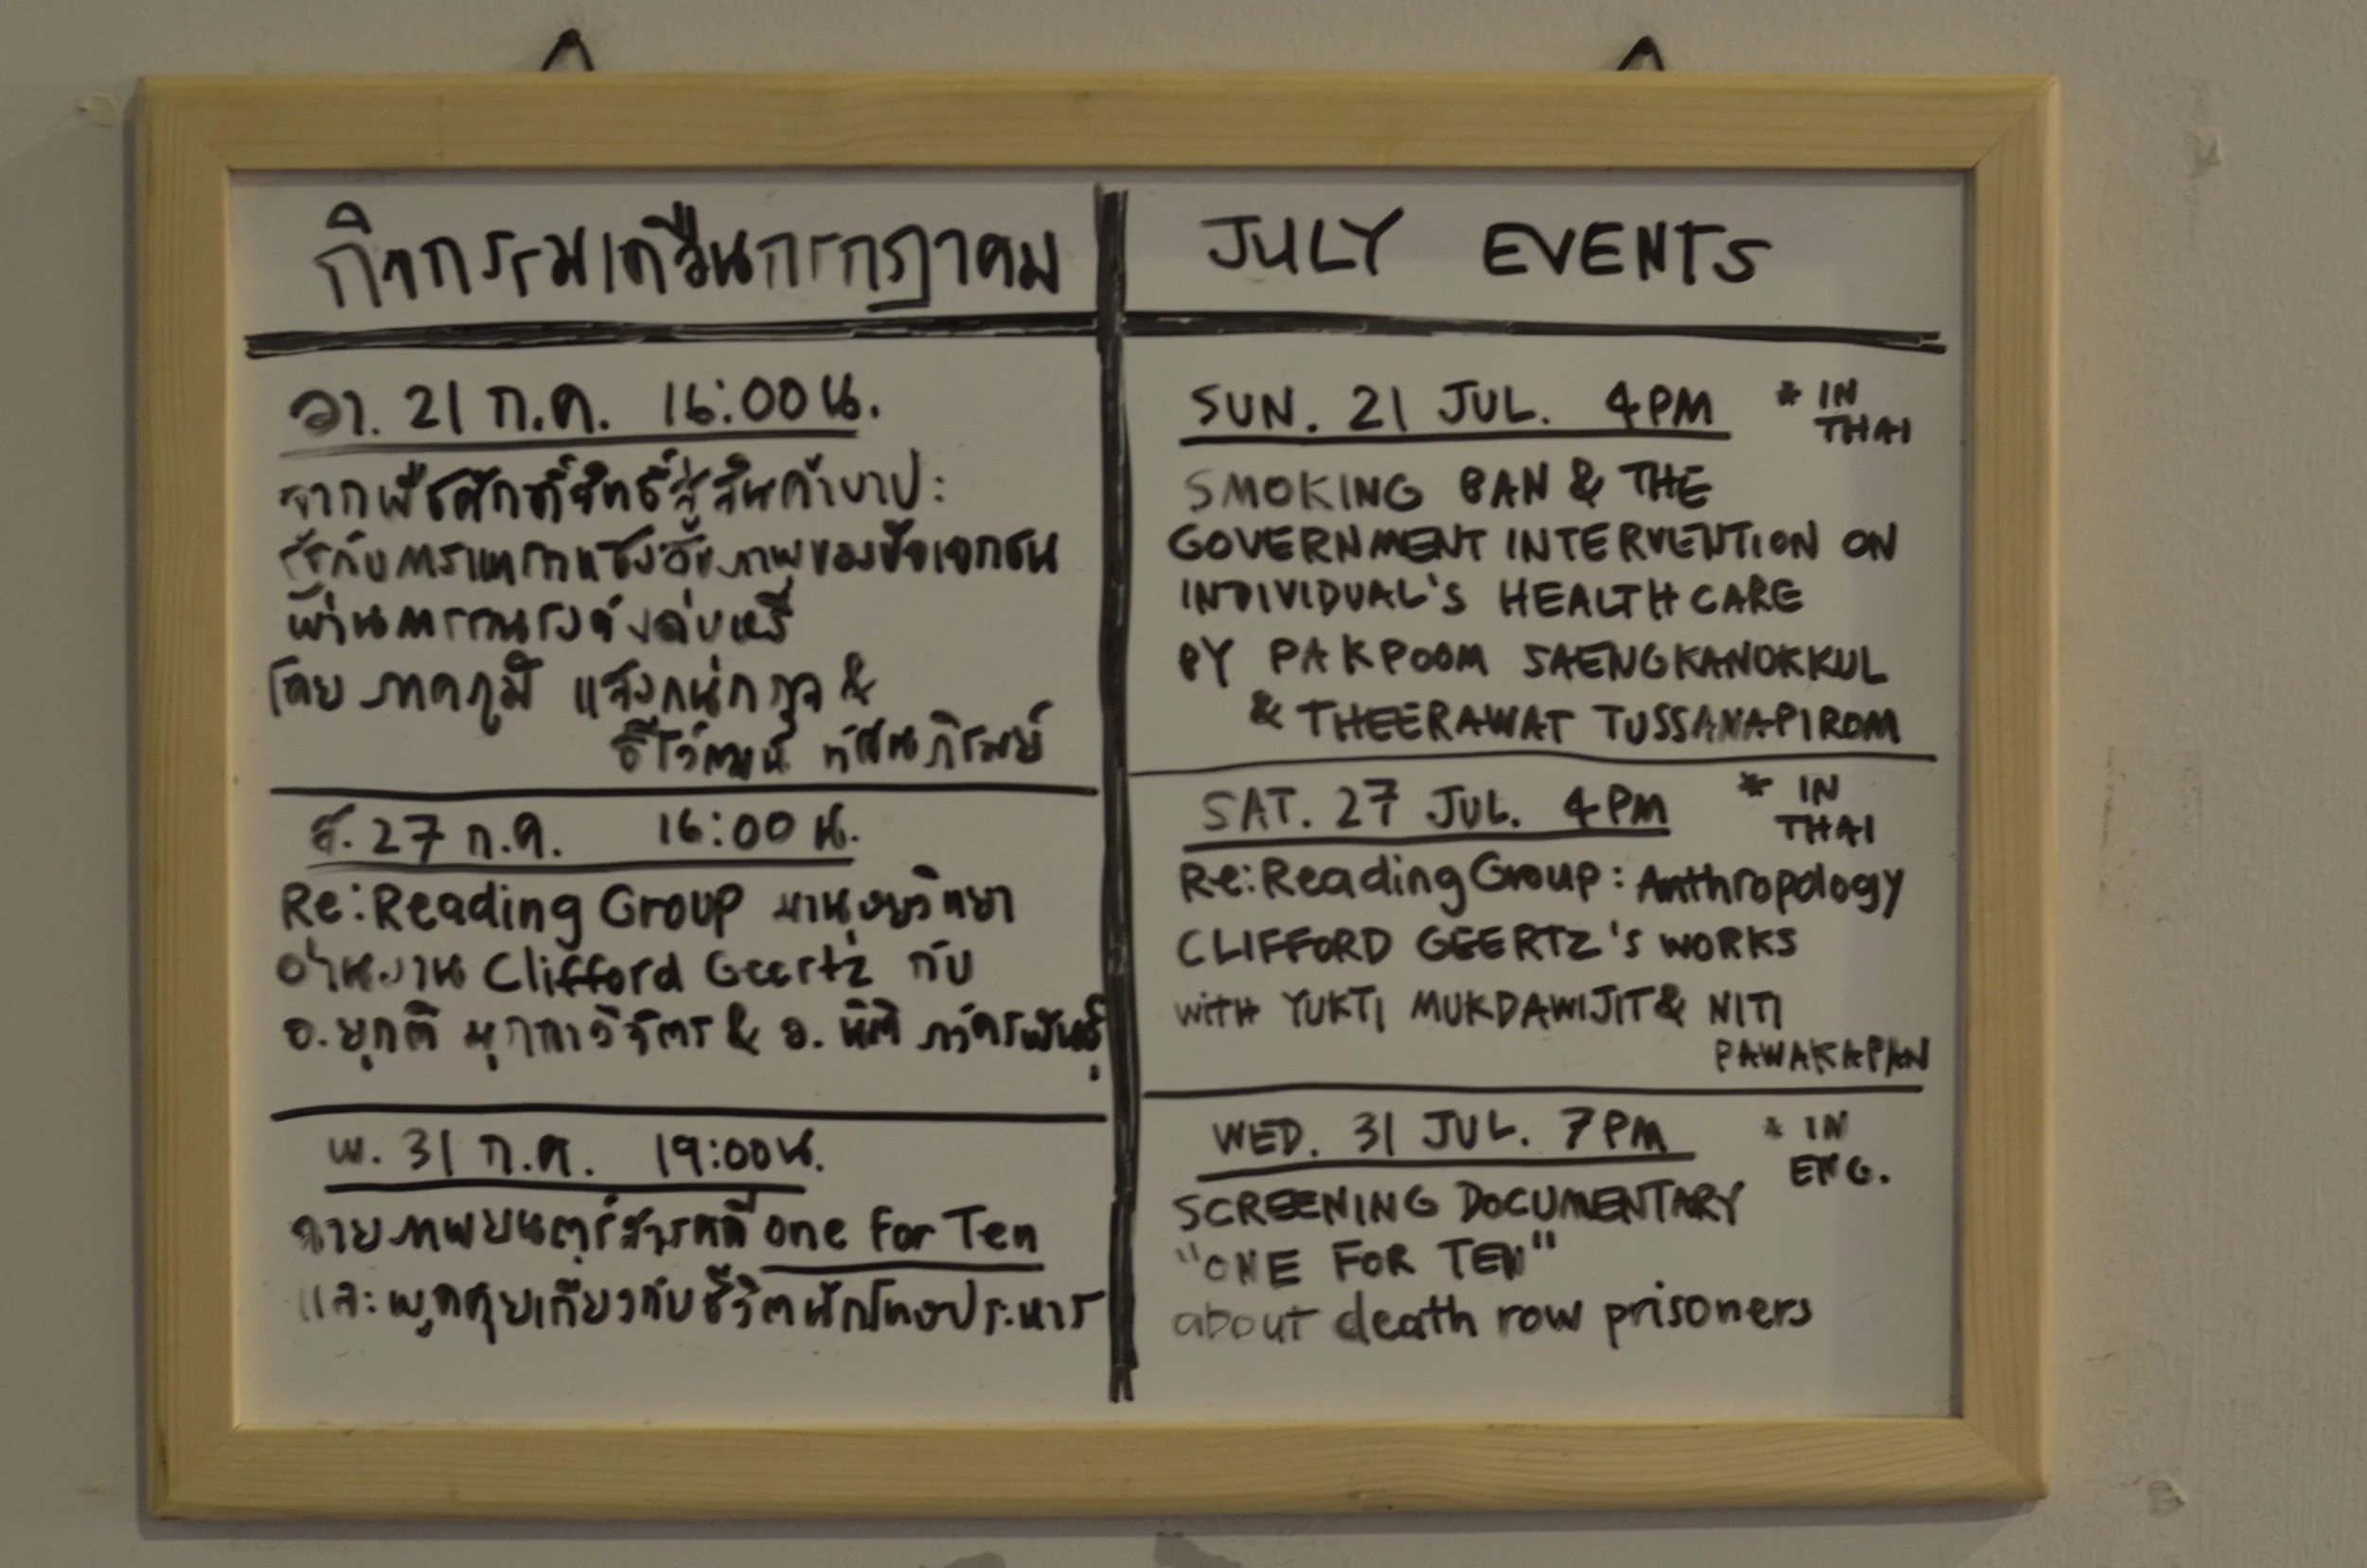 กิจกรรมเดือนกรกฎาคม
อา. 21 ก.ค. 16:00 น.
จากพืชศักดิ์สิทธิ์สู่สินค้าบาป:
รัฐกับการแทรกแซงสุขภาพของปัจเจกชน
ผ่านการรณรงค์งดบุหรี่
โดย ภาคภูมิ แสงกนกกุล &
ธีรวัฒน์ ทัศนภิรมย์
ส. 27 ก.ค. 16:00 น.
Re:Reading Group มานุษยวิทยา
อ่านงาน Clifford Geertz กับ
อ. ยุกติ มุกดาวิจิตร & อ. นิติ ภวัครพันธุ์
พ. 31 ก.ค. 19:00 น.
ฉายภาพยนตร์สารคดี One For Ten
และพูดคุยเกี่ยวกับชีวิตนักโทษประหาร
JULY EVENTS
SUN. 21 JUL. 4PM * IN
THAI
SMOKING BAN & THE
GOVERNMENT INTERVENTION ON
INDIVIDUAL'S HEALTH CARE
BY PAKPOOM SAENGKANOKKUL
& THEERAWAT TUSSANAPIROM
SAT. 27 JUL. 4PM * IN
THAI
Re:Reading Group: Anthropology
CLIFFORD GEERTZ'S WORKS
with YUKTI MUKDAWIJIT & NITI
PAWAKAPAN
WED. 31 JUL. 7PM * IN
ENG.
SCREENING DOCUMENTARY
"ONE FOR TEN"
about death row prisoners